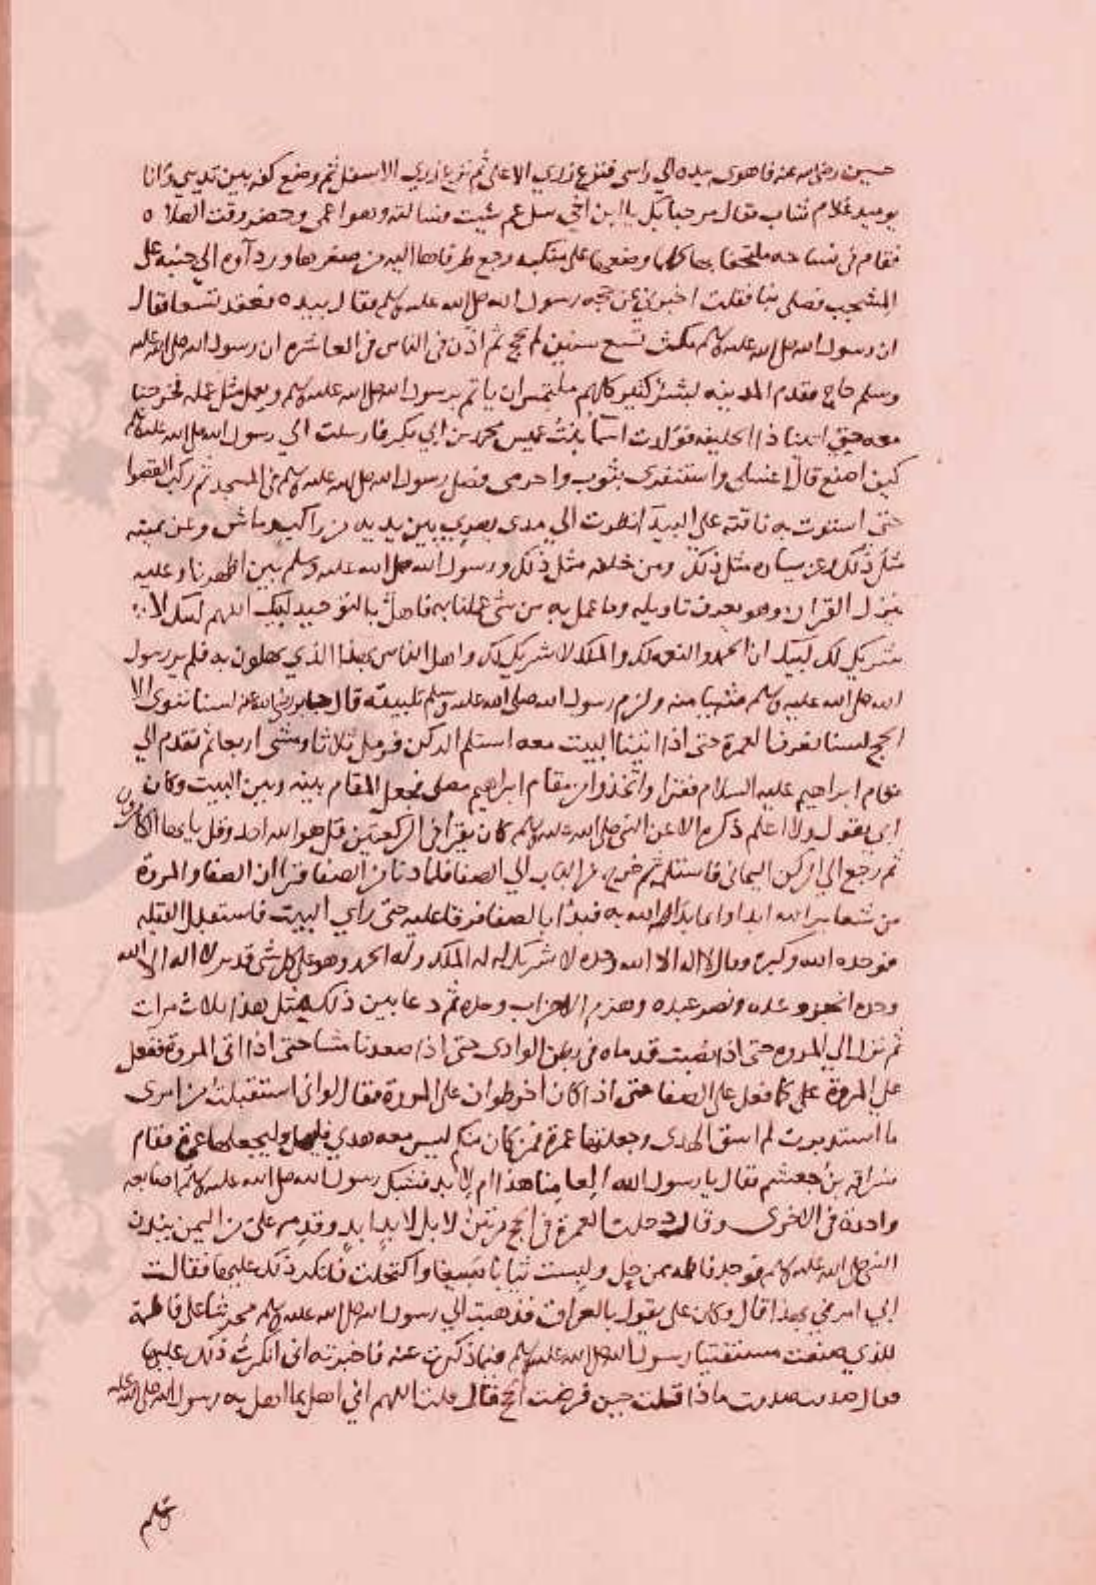 حسين رضي الله عنه فاهوى بيده الي راسي فنزع زري الاعلى ثم نزع زري الاسفل ثم وضع كفه بين ثديي وانا
يوميد غلام شاب فقال مرحبا بك يا ابن اخي سل عم شيت فسالته وهو اعمى وحضر وقت الصلاه
فقام في نساجه ملتحفا بها كلما وضعها على منكبه رجع طرفاها اليه من صغرها ورداوه الي جنبه على
المشجب فصلى بنا فقلت اخبرني عن حجه رسول الله صلى الله عليه وسلم فقال بيده فعقد تسعا فقال
ان رسول الله صلى الله عليه وسلم مكث تسع سنين لم يحج ثم اذن في الناس في العاشره ان رسول الله صلى الله عليه
وسلم حاج فقدم المدينه بشر كثير كلهم يلتمس ان ياتم برسول الله صلى الله عليه وسلم ويعمل مثل عمله فخرجنا
معه حتى اتينا ذا الحليفه فولدت اسما بنت عميس محمد بن ابي بكر فارسلت الي رسول الله صلى الله عليه وسلم
كيف اصنع قال اغتسلي واستثفري بثوب واحرمي فصلى رسول الله صلى الله عليه وسلم في المسجد ثم ركب القصوا
حتى استوت به ناقته على البيدآ نظرت الي مدى بصري بين يديه من راكب وماش وعن يمينه
مثل ذلك وعن يساره مثل ذلك ومن خلفه مثل ذلك ورسول الله صلى الله عليه وسلم بين اظهرنا وعليه
ينزل القران وهو يعرف تاويله وما عمل به من شي عملنا به فاهل بالتوحيد لبيك اللهم لبيك لا
شريك لك لبيك ان الحمد والنعمه لك والملك لا شريك لك واهل الناس بهذا الذي يهلون به فلم يرد رسول
الله صلى الله عليه وسلم شيا منه ولزم رسول الله صلى الله عليه وسلم تلبيته قال جابر رضي الله عنه لسنا ننوي الا
الحج لسنا نعرف العمرة حتى اذا اتينا البيت معه استلم الركن فرمل ثلاثا ومشى اربعا ثم تقدم الي
مقام ابراهيم عليه السلام فقرا واتخذوا من مقام ابراهيم مصلى فجعل المقام بينه وبين البيت وكان
ابي يقول ولا اعلم ذكره الا عن النبي صلى الله عليه وسلم كان يقرا في الركعتين قل هو الله احد وقل يا ايها الكافرون
ثم رجع الي الركن اليماني فاستلمه ثم خرج من الباب الي الصفا فلما دنا من الصفا قرا ان الصفا والمروة
من شعاير الله ابدا وا بما بدا الله به فبدا بالصفا فرقا عليه حتى راي البيت فاستقبل القبله
فوحد الله وكبره وقال لا اله الا الله وحده لا شريك له له الملك وله الحمد وهو على كل شي قدير لا اله الا الله
وحده انجز وعده ونصر عبده وهزم الاحزاب وحده ثم دعا بين ذلك مثل هذا ثلاث مرات
ثم نزل الي المروه حتى اذا نصبت قدماه في بطن الوادي حتى اذا صعدنا مشا حتى اذا اتى المروة ففعل
على المروة على كما فعل على الصفا حتى اذا كان اخر طواف على المروة فقال لو اني استقبلت من امري
ما استدبرت لم اسق الهدي وجعلتها عمرة فمن كان منكم ليس معه هدي فليحل وليجعلها عمرة فقام
سراقه بن جعشم فقال يا رسول الله العامنا هذا ام لابد فشبك رسول الله صلى الله عليه وسلم اصابعه
واحدة في الاخرى وقال دخلت العمرة في الحج مرتين لا بل لابد ابد وقدم علي من اليمن ببدن
النبي صلى الله عليه وسلم فوجد فاطمه ممن حل ولبست ثيابا صبيغا واكتحلت فانكر ذلك عليها فقالت
ابي امرني بهذا قال وكان علي يقول بالعراق فذهبت الي رسول الله صلى الله عليه وسلم محرشا على فاطمة
للذي صنعت مستفتيا رسول الله صلى الله عليه وسلم فيما ذكرت عنه فاخبرته اني انكرت ذلك عليها
فقال صدقت صدقت ماذا قلت حين فرضت الحج فقال قلت اللهم اني اهل بما اهل به رسول الله صلى الله عليه
وسلم